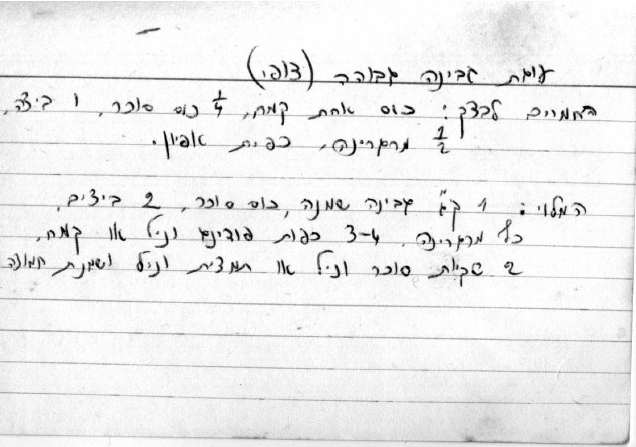 עוגת גבינה גבוהה (צופי)
החמרים לבצק: כוס אחת קמח, 1/4 כוס סוכר, 1 ביצה,
1/2 מרגרינה, כפית אפיון.
המלוי: 1 ק"ג גבינה שמנה, כוס סוכר, 2 ביצים,
מרגרינה, 3-4 כפות פודינג וניל או קמח,
2 שקיות סוכר וניל או תמצית וניל ושמנת חמוצה